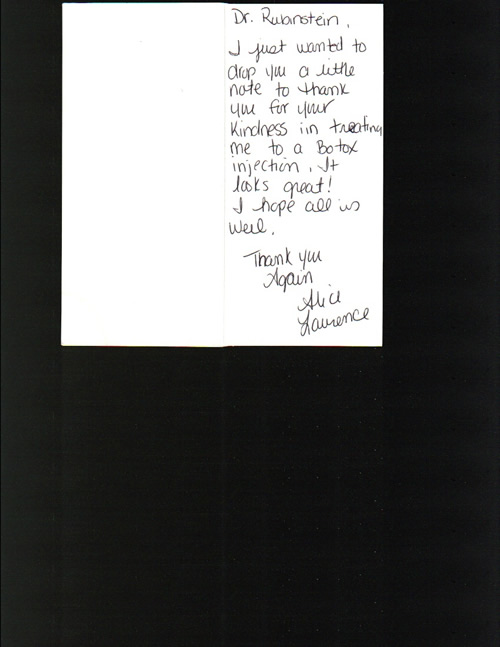 Dr. Rubinstein,
I just wanted to
drop you a little
note to thank
you for your
kindness in treating
me to a Botox
injection. It
looks great!
I hope all is
well.
Thank you
Again
Alice
Lawrence